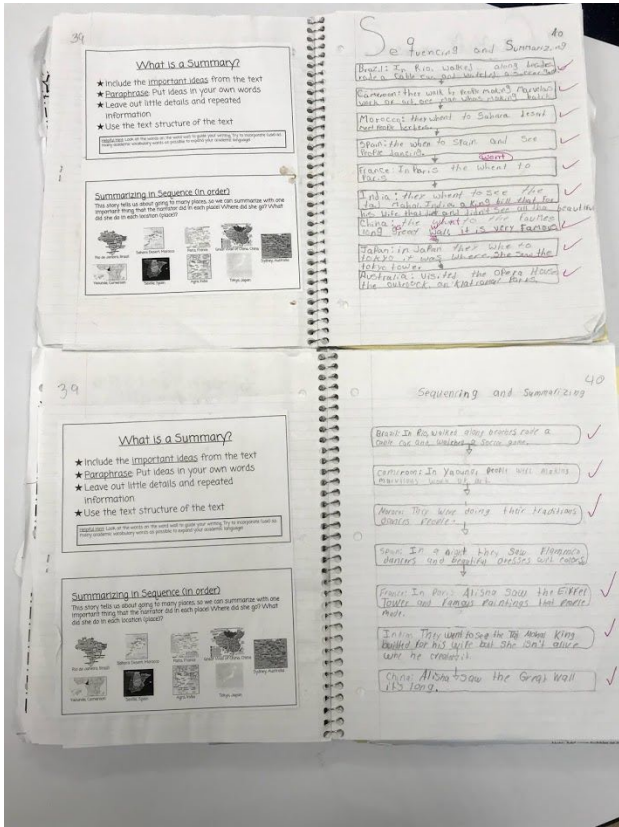 39
What is a Summary?
★Include the important ideas from the text
★Paraphrase: Put ideas in your own words
★Leave out little details and repeated
information
★Use the text structure of the text
Helpful hint: Look at the words on the word wall to guide your writing. Try to incorporate (use) as
many academic vocabulary words as possible to expand your academic language!
Summarizing in Sequence (in order)
This story tells us about going to many places, so we can summarize with one
important thing that the narrator did in each place! Where did she go? What
did she do in each location (place)?
Rio de Janeiro, Brazil
Sahara Desert, Morocco
Paris, France
Great Wall of China, China
Sydney, Australia
Yaounde, Cameroon
Seville, Spain
Agra, India
Tokyo, Japan
40
Sequencing and Summarizing
Brazil: In Rio, walked along
rode a cable car and watched a
Cameroon: they walk by people making
Morocco: they whent to Sahara
Spain: the when to Spain and see
People dancing.
went
France: In Paris the whent to
Paris.
India: ther whent to see the
China: the
long great wall it is very Famous
Japan: in Japan
tokyo it was where she saw the
tokyo tower
Australia: visited the opera House
the outback,
39
What is a Summary?
★Include the important ideas from the text
★Paraphrase: Put ideas in your own words
★Leave out little details and repeated
information
★Use the text structure of the text
Helpful hint: Look at the words on the word wall to guide your writing. Try to incorporate (use) as
many academic vocabulary words as possible to expand your academic language!
Summarizing in Sequence (in order)
This story tells us about going to many places, so we can summarize with one
important thing that the narrator did in each place! Where did she go? What
did she do in each location (place)?
Rio de Janeiro, Brazil
Sahara Desert, Morocco
Paris, France
Great Wall of China, China
Sydney, Australia
Yaounde, Cameroon
Seville, Spain
Agra, India
Tokyo, Japan
40
Sequencing and Summarizing
Brazil: In Rio, walked along beaches rode a
cable car and watched a game.
Cameroon: In people was making
marvelous work of art.
They was doing their traditions
dances people.
Spain: In a night they saw Flamenco
dancers and dresses with colors
France: In Paris Alisha saw the Eiffel
Tower and Famous Paintings that People
made.
India: They went to see the Taj Mahal King
builded for his wife but she isn't alive
he created it.
China: Alisha saw the Great Wall
it's long.